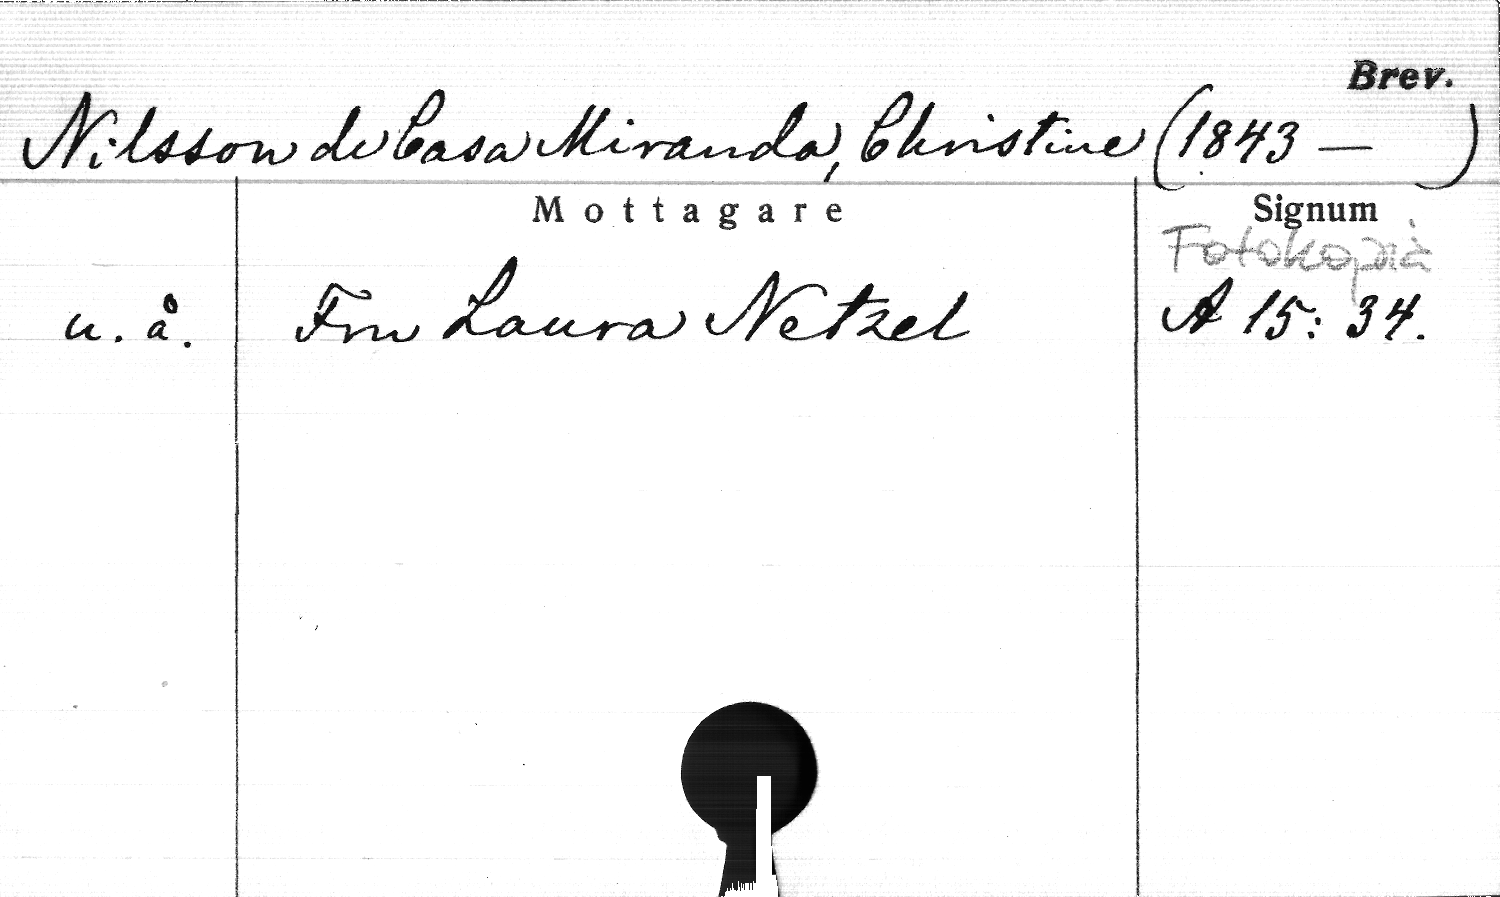 Brev.
Nilsson de Casa Miranda, Christine (1843 — )
Mottagare Signum
Fotokopia
u. å. Fru Laura Netzel A 15: 34.